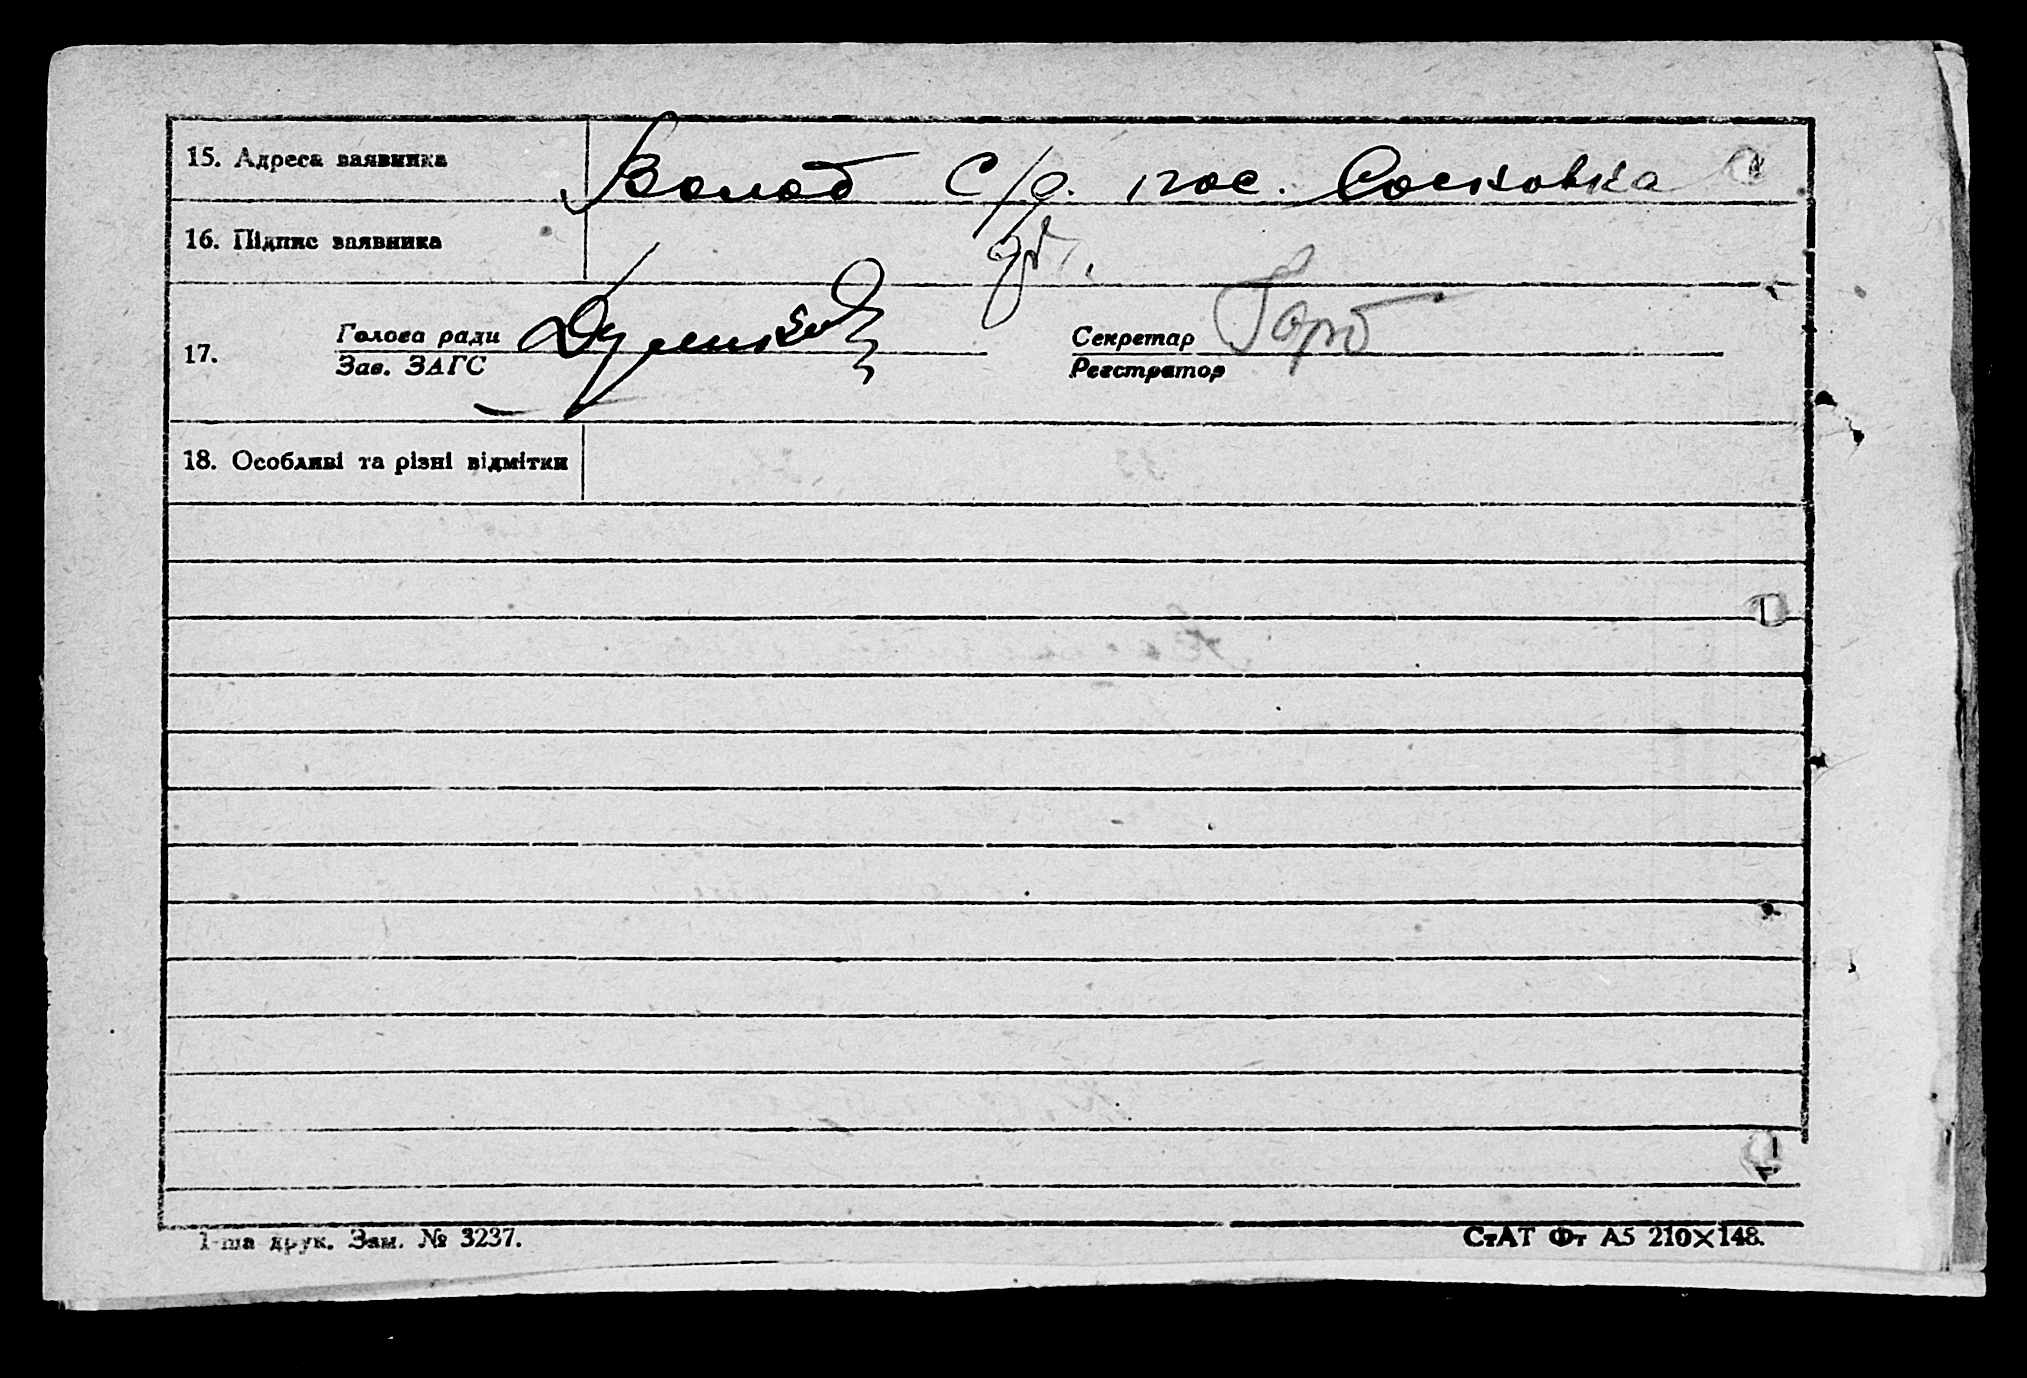 15. Адреса заявника Волод С/р. пос. Сосновка
16. Підпис заявника
17. Голова ради Секретар Горб
Зав. ЗАГС Реєстратор
18. Особливі та різні відмітки
1-ша друк. Зам. № 3237. СтАТ Фт А5 210×148.